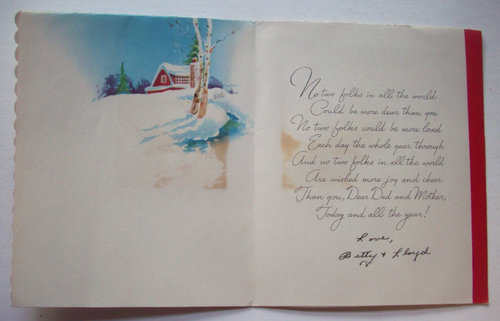 No two folks in all the world
Could be more dear than you
No two folks could be more loved
Each day the whole year through
And no two folks in all the world
Are wished more joy and cheer
Than you, Dear Dad and Mother,
Today and all the year!
Love,
Betty & Lloyd